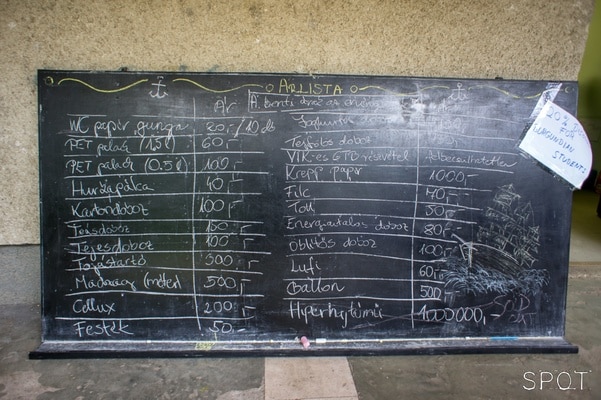 ÁRLISTA
Ár
WC papír guriga 20,-/10 db
PET palack (1,5 l) 60,-
PET palack (0,5 l) 100,-
Hurkapálca 40,-
Kartondoboz 100,-
Teásdoboz 150,-
Tejesdoboz 100,-
Tojástartó 500,-
Madzag (méter) 500,-
Cellux 200,-
Festék 50,-
A fenti árak az
doboz
VIK-es GTB részvétel Felbecsülhetetlen
Krepp papír 1000,-
Filc 70,-
Toll 50,-
Energiaitalos doboz 80,-
Öblítős doboz 100,-
Lufi 60,-
Ballon 500,-
Hiperhajtómű 1000000,-
20%
FOR
STUDENTS
SPOT